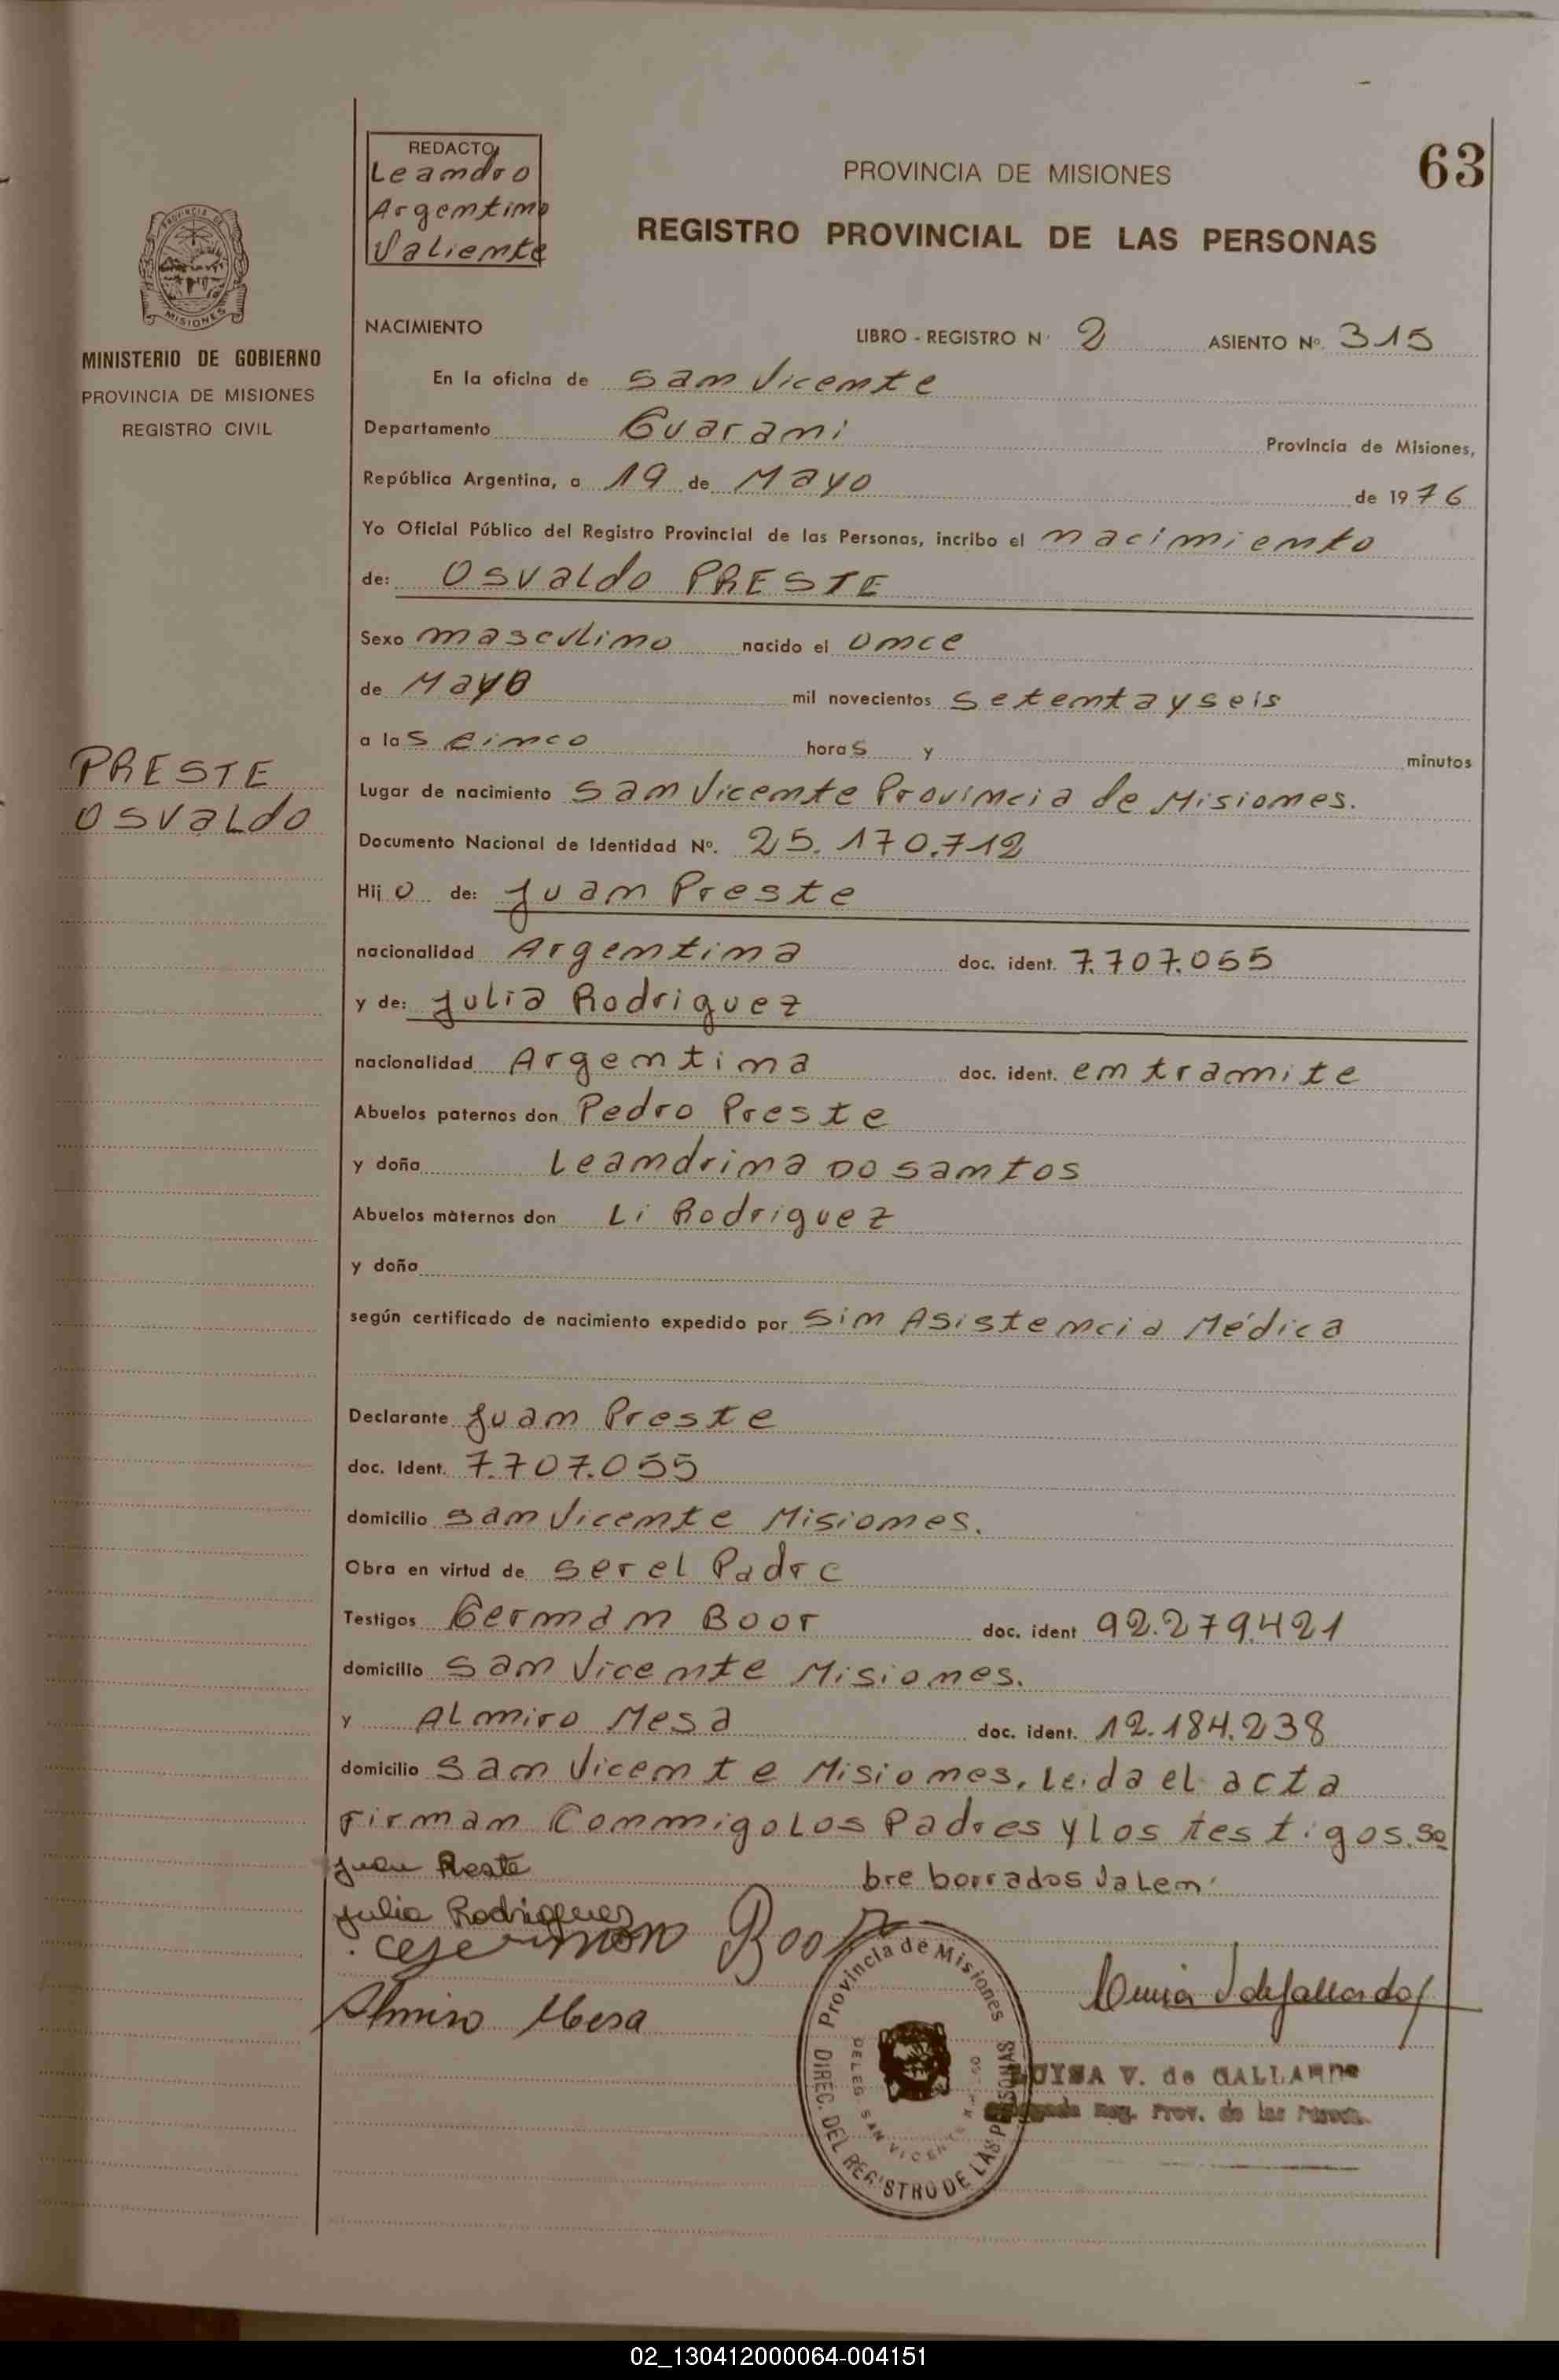 REDACTO
Leandro
Argentino
Valiente
PROVINCIA DE MISIONES
63
REGISTRO PROVINCIAL DE LAS PERSONAS
PROVINCIA DE
MISIONES
MINISTERIO DE GOBIERNO
PROVINCIA DE MISIONES
REGISTRO CIVIL
NACIMIENTO
LIBRO - REGISTRO N° 2 ASIENTO Nº. 315
En la oficina de San Vicente
Departamento Guarani Provincia de Misiones,
República Argentina, a 19 de Mayo de 1976
Yo Oficial Público del Registro Provincial de las Personas, incribo el nacimiento
de: Osvaldo PRESTE
Sexo masculino nacido el once
de Mayo mil novecientos setenta y seis
a las cinco horas y minutos
PRESTE
Osvaldo
Lugar de nacimiento San Vicente Provincia de Misiones.
Documento Nacional de Identidad Nº. 25.170.712
Hijo de: Juan Preste
nacionalidad Argentina doc. ident. 7.707.055
y de: Julia Rodriguez
nacionalidad Argentina doc. ident. en tramite
Abuelos paternos don Pedro Preste
y doña Leandrina DO santos
Abuelos maternos don Li Rodriguez
y doña
según certificado de nacimiento expedido por Sin Asistencia Médica
Declarante Juan Preste
doc. Ident. 7.707.055
domicilio San Vicente Misiones.
Obra en virtud de ser el Padre
Testigos German Boor doc. ident 92.279.421
domicilio San Vicente Misiones.
y Almiro Mesa doc. ident. 12.184.238
domicilio San Vicente Misiones, Leida el acta
Firman Conmigo Los Padres y los testigos. So
bre borrados Valen
Juan Preste
Julia Rodriguez
Boor
Almiro Mesa
Provincia de Misiones
DIREC. DEL REGISTRO DE LAS PERSONAS
DELEG. SAN VICENTE
LUISA V. de GALLARDO
Reg. Prov. de las
02_130412000064-004151